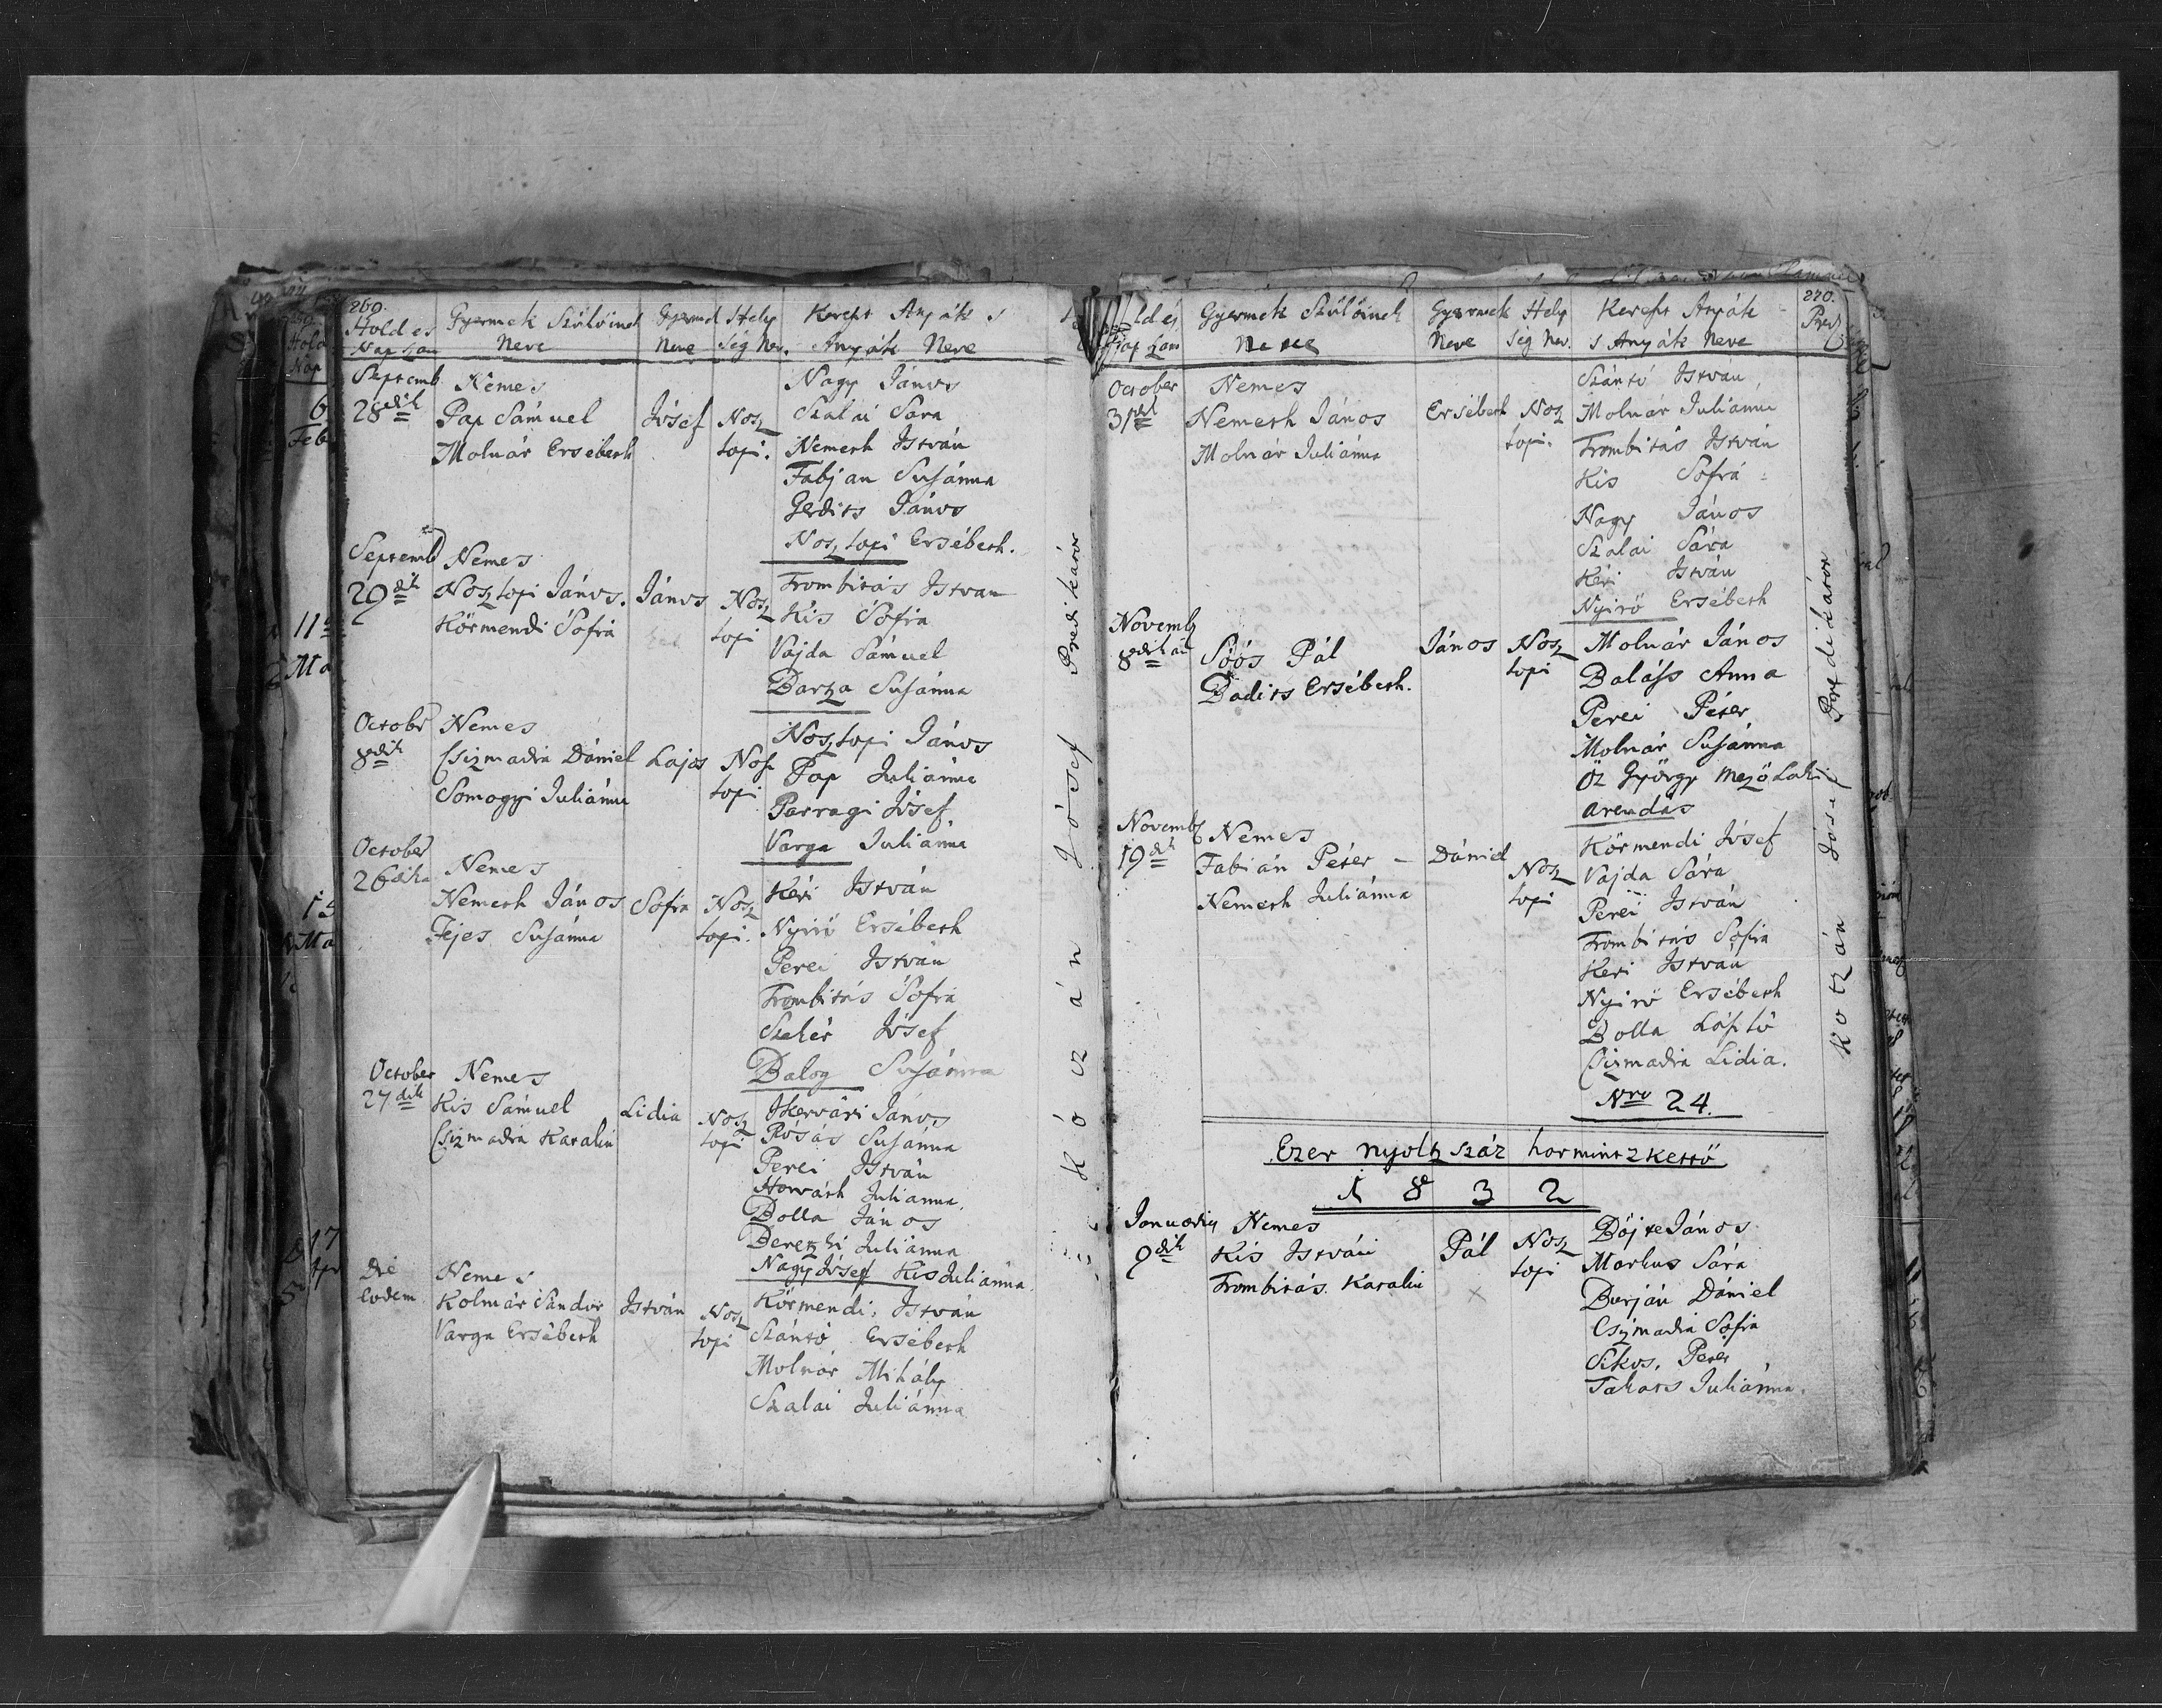 269.
Hold es Nap Zam
Gyermek Szülöinek Neve
Gyermek Neve
Hely Ség Nev.
Kereszt Atyák s Anyák Neve
Septemb 28dik
Nemes
Pap Sámuel
Molnár Ersébeth
Jósef
Nosz
lopi.
Nagy János
Szalai Sára
Nemeth István
Fabjan Susánna
Gerdits János
Nosz lopi Ersébeth.
Septemb 29dik
Nemes
Nosz lopi János.
Körmendi Sófia
János
Nosz
lopi
Trombitás Istvan
Kis Sófia
Vajda Sámuel
Barza Susánna
Octobr 8dik
Nemes
Csizmadia Dániel
Somogyi Juliánna
Lajos
Nosz
lopi
Noszlopi János
Pap Juliánna
Parragi Jósef.
Varga Juliánna
October 26dika
Nemes
Nemeth János
Fejes Susánna
Sófia
Nosz
lopi.
Kéri István
Nyirö Ersébeth
Perei István
Trombitás Sófia
Szehér Jósef
Balog Susánna
October 27dik
Nemes
Kis Sámuel
Csizmadia Karalin
Lidia
Nosz
lopi
Ikervári János
Rósás Susánna
Perei István
Horváth Juliánna.
Bolla János
Juliánna
Nagy Jósef Kis Juliánna.
Die Eodem.
Nemes
Kolmár Sándor
Varga Ersébeth
István
Nosz
lopi
Körmendi István
Szántó Ersébeth
Molnár Mihály
Szalai Juliánna
Kóczán Jósef Predikátor
270.
Gyermek Szülöinek Neve
Gyermek Neve
Hely Ség Nev.
Kereszt Atyák s Anyák Neve
Pred.
October 31dik
Nemes
Nemeth János
Molnár Juliánna
Ersébeth
Nosz
lopi.
Szántó István
Molnár Juliánna
Trombitás István
Kis Sófia
Nagy János
Szalai Sára
Kéri István
Nyirö Ersébeth
Novemb 8dikán
Soós Pál
Badits Ersébeth.
János
Nosz
lopi
Molnár János
Baláss Anna
Perei Péter
Molnár Susánna
Öz György Mezö Laki
arendás
Novemb 19dik
Nemes
Fabián Péter
Nemeth Juliánna
Dániel
Nosz
lopi
Körmendi Jósef
Vajda Sára
Perei István
Trombitás Sófia
Keri István
Nyirö Ersébeth
Bolla László
Csizmadia Lidia.
Nro 24.
Ezer nyoltz száz harmintzkettö
1832
Januarius 9dik
Nemes
Kis István
Trombitás. Karalin
Pál
Nosz
lopi
Böjte János
Markus Sára
Burján Dániel
Csizmadia Sófia
Sikos. Péter
Takats Juliánna.
Kotzán Josef Predikátor